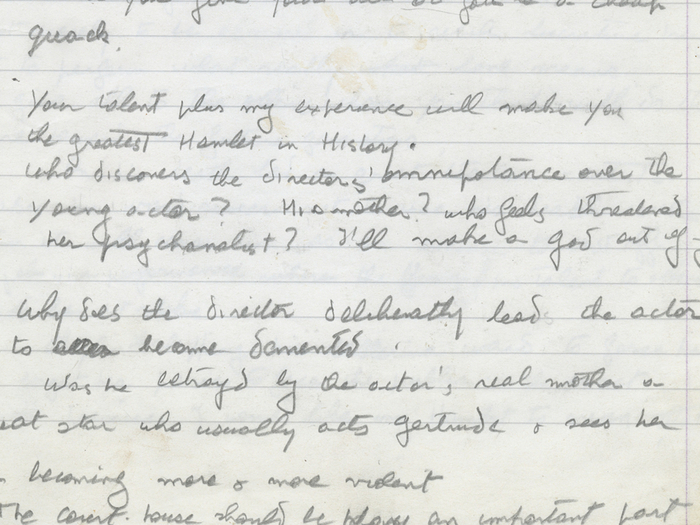 you give
quack.
Your talent plus my experience will make you
the greatest Hamlet in History.
who discovers the directors' omnipotance over the
young actor? His mother? who feels threatened
her psychanalist? I'll make a god out of
Why does the director deliberatly lead the actor
to become demented.
Was he betrayed by the actor's real mother a
eat star who usually acts gertrude & sees her
becoming more & more violent
The court house should be an important part